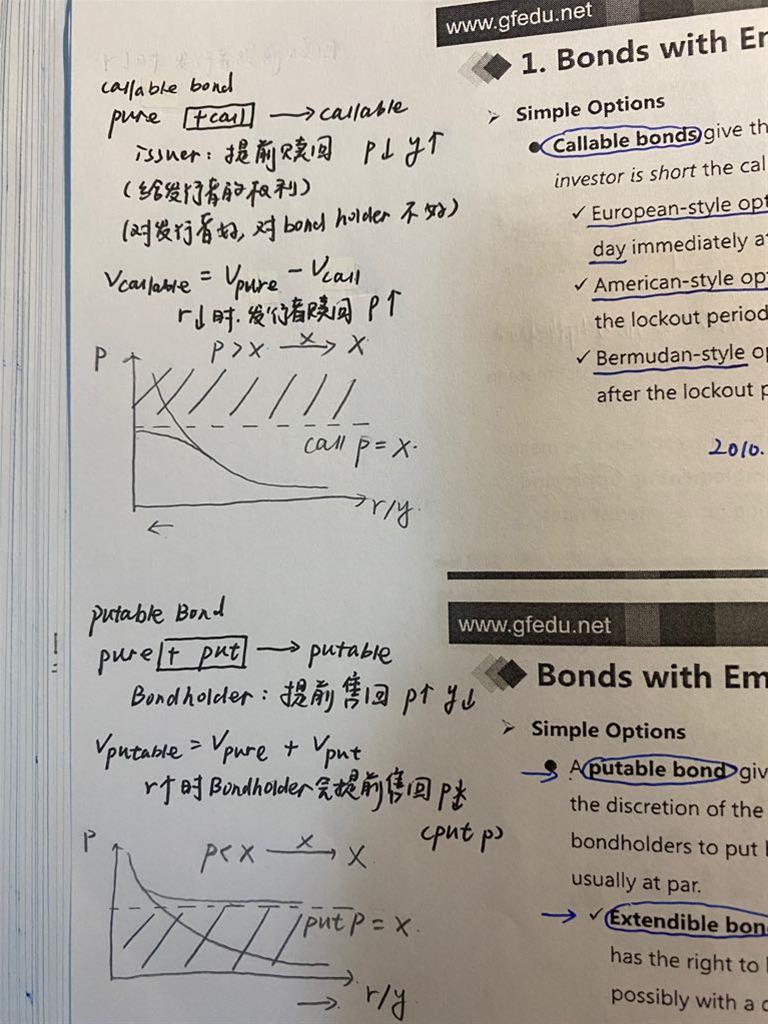 callable bond
pure +call → callable
issuer: 提前赎回 P↓ y↑
(给发行者的权利)
(对发行者好, 对 bond holder 不好)
Vcallable = Vpure - Vcall
r↓时. 发行者赎回 P↑
P > X —x→ X
P
call P = X.
r/y
←
putable Bond
pure + put → putable
Bondholder: 提前售回 P↑ y↓
Vputable = Vpure + Vput
r↑时 Bondholder会提前售回 P↓
(put p)
P< X —x→ X
P
put P = X.
r/y
→
www.gfedu.net
1. Bonds with Em
Simple Options
Callable bonds give th
investor is short the cal
✓ European-style opt
day immediately a
✓ American-style op
the lockout period
✓ Bermudan-style o
after the lockout p
2010.
www.gfedu.net
Bonds with Em
Simple Options
→ A putable bond giv
the discretion of the
bondholders to put
usually at par.
→ ✓ Extendible bon
has the right to
possibly with a c